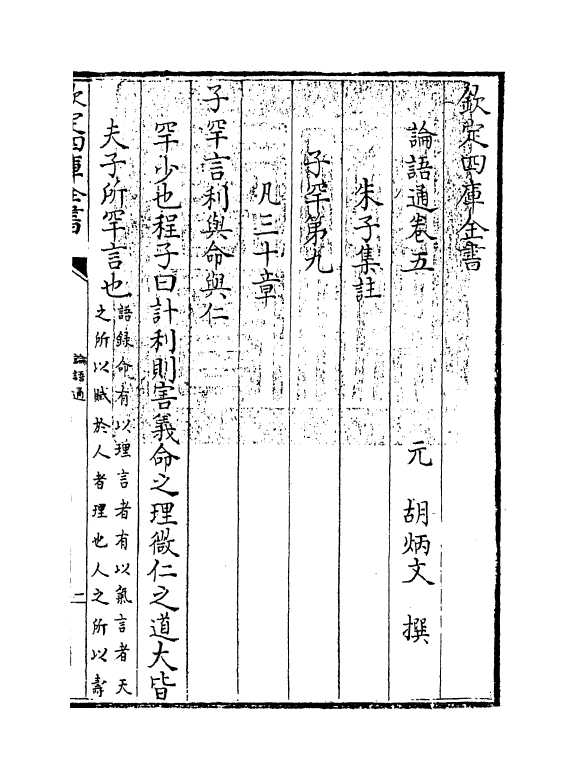 欽定四庫全書
論語通卷五
元　胡炳文　撰
朱子集註
子罕第九
凡三十章
子罕言利與命與仁
罕少也程子曰計利則害義命之理微仁之道大皆
夫子所罕言也
語錄命有以理言者有以氣言者天
之所以賦於人者理也人之所以壽
欽定四庫全書
論語通
二